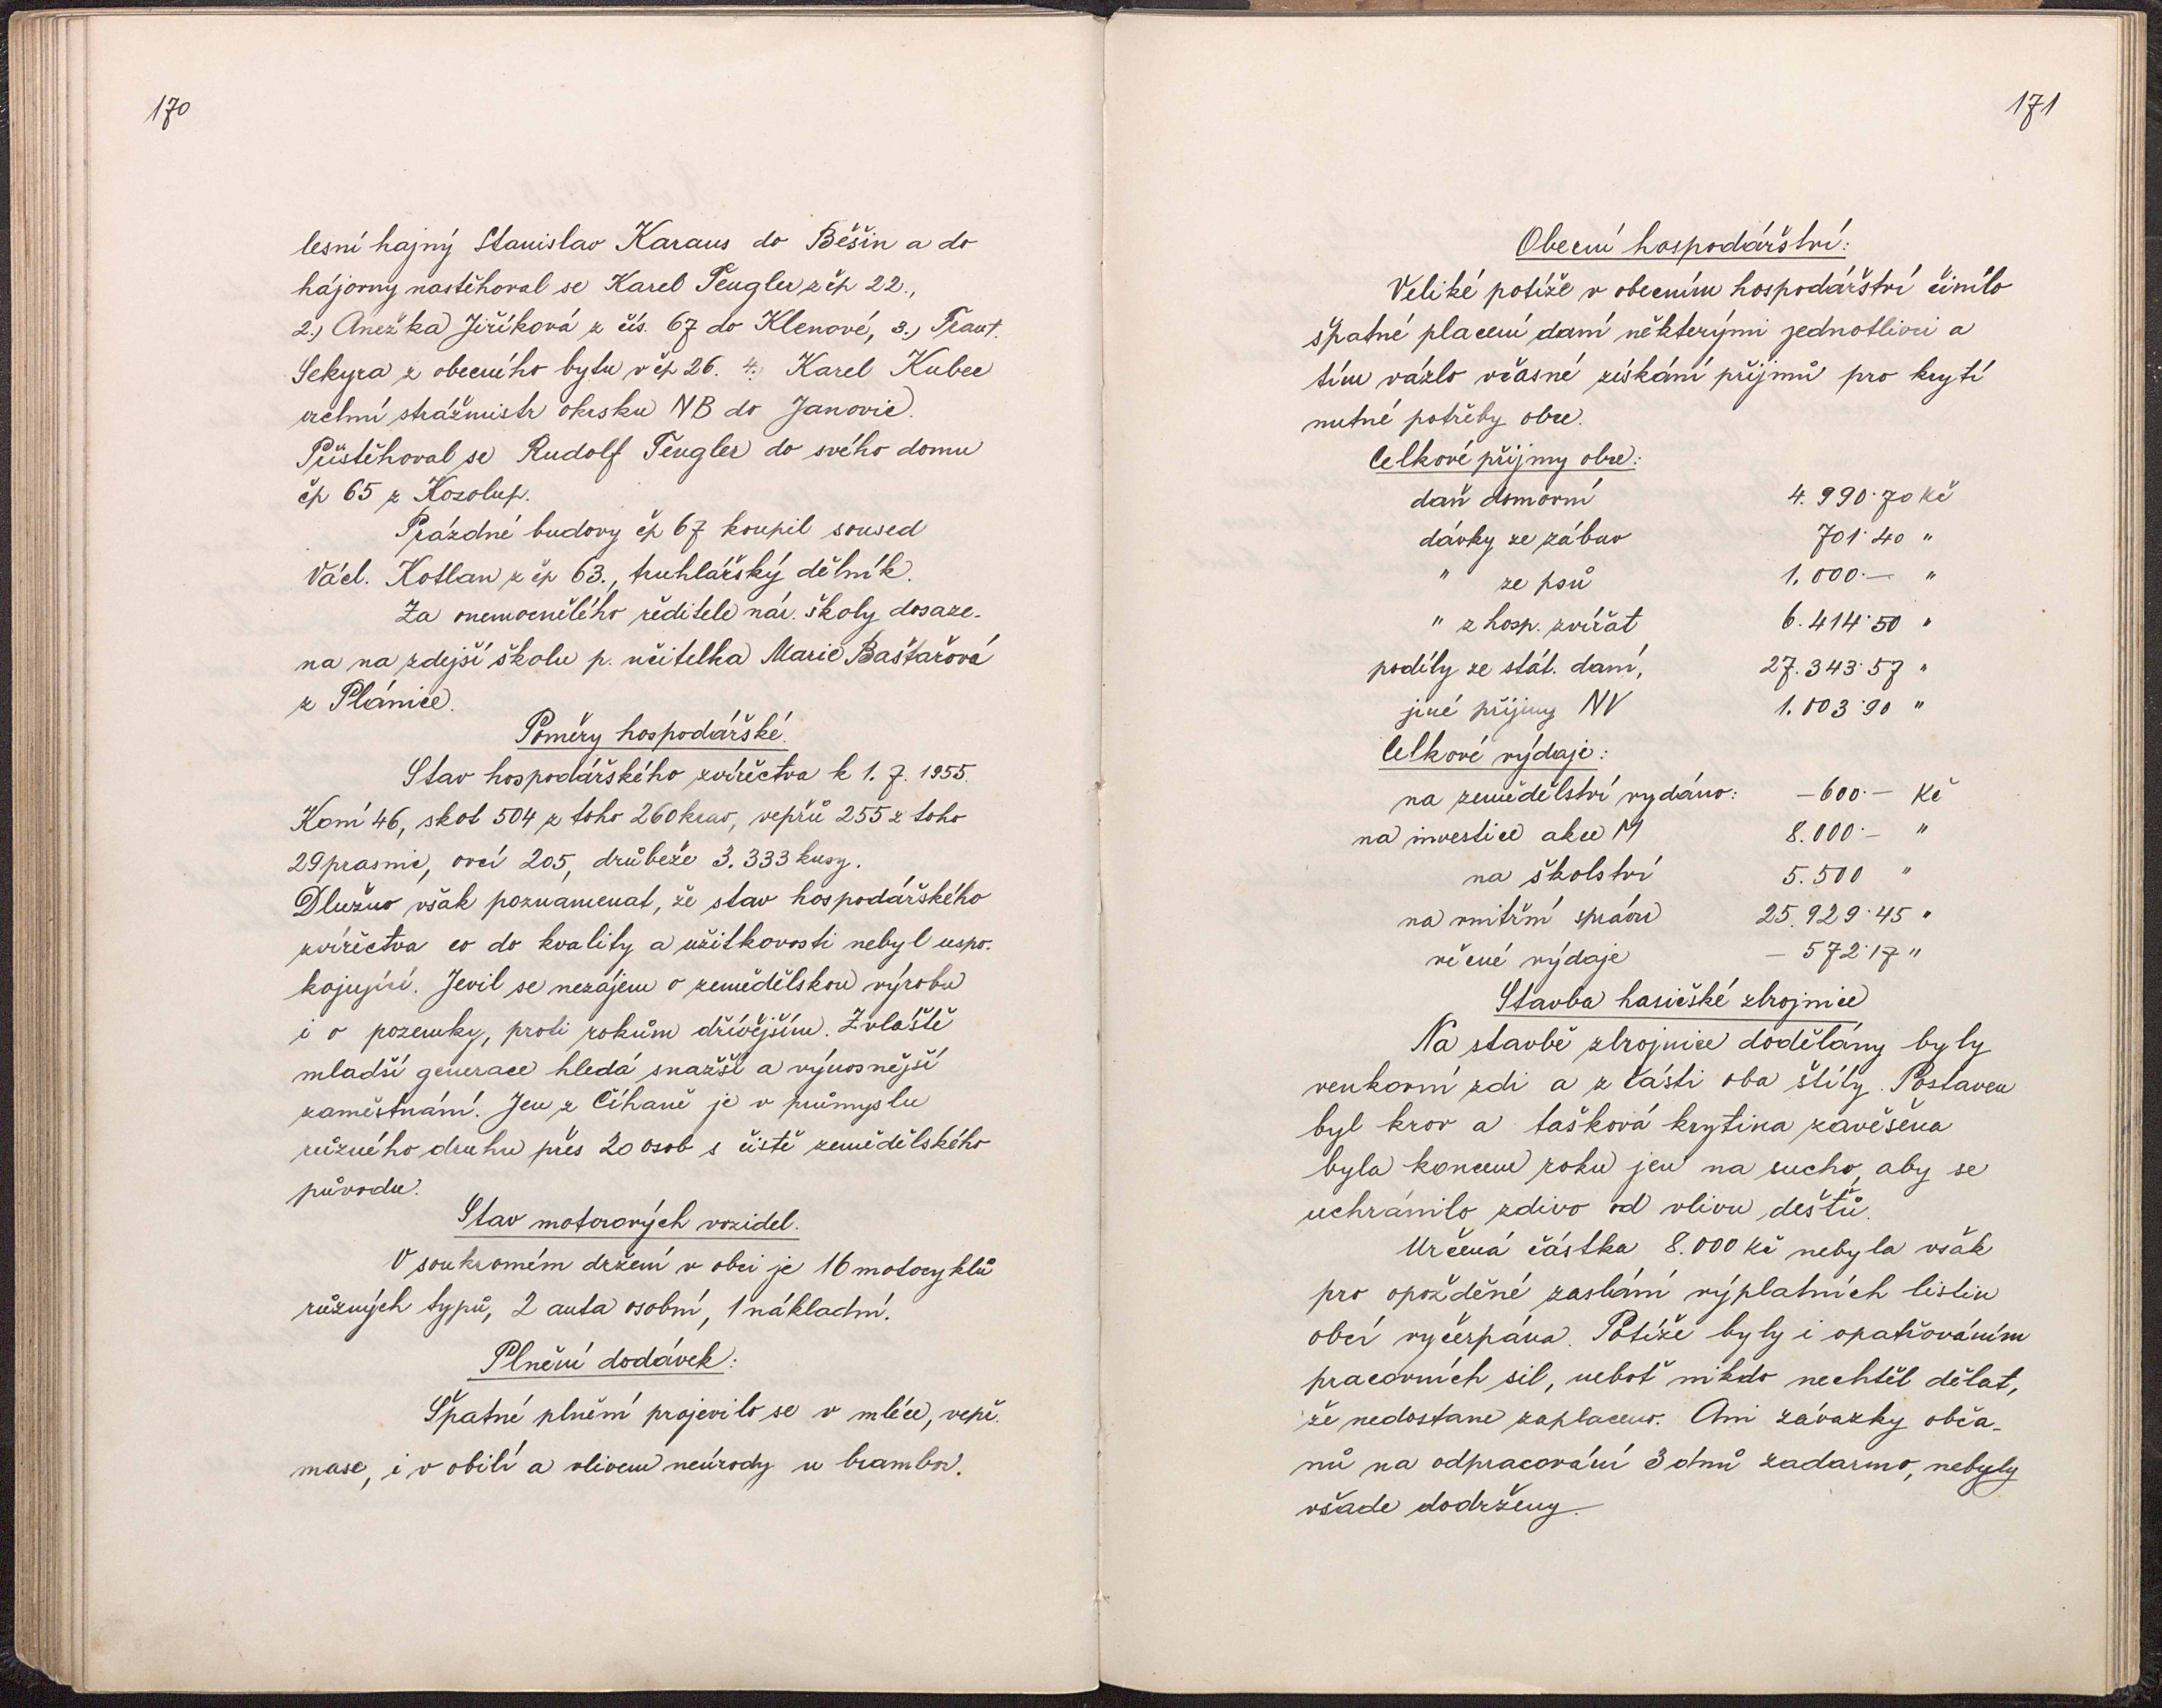 170
lesní hajný Stanislav Karaus do Běšin a do
hájovny nastěhoval se Karel Tengler z čp 22.,
2.) Anežka Jiříková z čís. 67 do Klenové, 3.) Frant.
Sekyra z obecního bytu v čp 26. 4.) Karel Kubec
vrchní strážmistr okrsku NB do Janovic.
Přistěhoval se Rudolf Tengler do svého domu
čp 65 z Kozolup.
Prázdné budovy čp 67 koupil soused
Václ. Kotlan z čp 63., truhlářský dělník.
Za onemocnělého ředitele nár. školy dosaze-
na na zdejší školu p. učitelka Marie Baštařová
z Plánice.
Poměry hospodářské.
Stav hospodářského zvířectva k 1. 7. 1955.
Koní 46, skot 504 z toho 260 krav, vepřů 255 z toho
29 prasnic, ovcí 205, drůbeže 3.333 kusy.
Dlužno však poznamenat, že stav hospodářského
zvířectva co do kvality a užitkovosti nebyl uspo-
kojující. Jevil se nezájem o zemědělskou výrobu
i o pozemky, proti rokům dřívějším. Zvláště
mladší generace hledá snažší a výnosnější
zaměstnání. Jen z Číhaně je v průmyslu
různého druhu přes 20 osob s čistě zemědělského
původu.
Stav motorových vozidel.
V soukromém držení v obci je 16 motocyklů
různých typů, 2 auta osobní, 1 nákladní.
Plnění dodávek:
Špatné plnění projevilo se v mléce, vepř.
mase, i v obilí a vlivem neúrody u brambor.
171
Obecní hospodářství:
Veliké potíže v obecním hospodářství činílo
špatné placení daní některými jednotlivci a
tím vázlo včasné získání příjmů pro krytí
nutné potřeby obce.
Celkové příjmy obce:
daň domovní 4.990·70 Kč
dávky ze zábav 701·40 "
" ze psů 1.000·— "
" z hosp. zvířat 6.414·50 "
podíly ze stát. daní, 27.343·57 "
jiné příjmy NV 1.003·90 "
Celkové výdaje:
na zemědělství vydáno: —600·— Kč
na investice akce M 8.000·— "
na školství 5.500 "
na vnitřní správu 25.929·45 "
věcné výdaje — 572·17 "
Stavba hasičské zbrojnice
Na stavbě zbrojnice dodělány byly
venkovní zdi a z části oba štíty. Postaven
byl krov a tašková krytina zavěšena
byla koncem roku jen na sucho, aby se
uchránilo zdivo od vlivu dešťů.
Určená částka 8.000 Kč nebyla však
pro opožděné zaslání výplatních listin
obcí vyčerpána. Potíže byly i opatřováním
pracovních sil, neboť nikdo nechtěl dělat,
že nedostane zaplaceno. Ani závazky obča-
nů na odpracování 3 dnů zadarmo, nebyly
všade dodrženy.